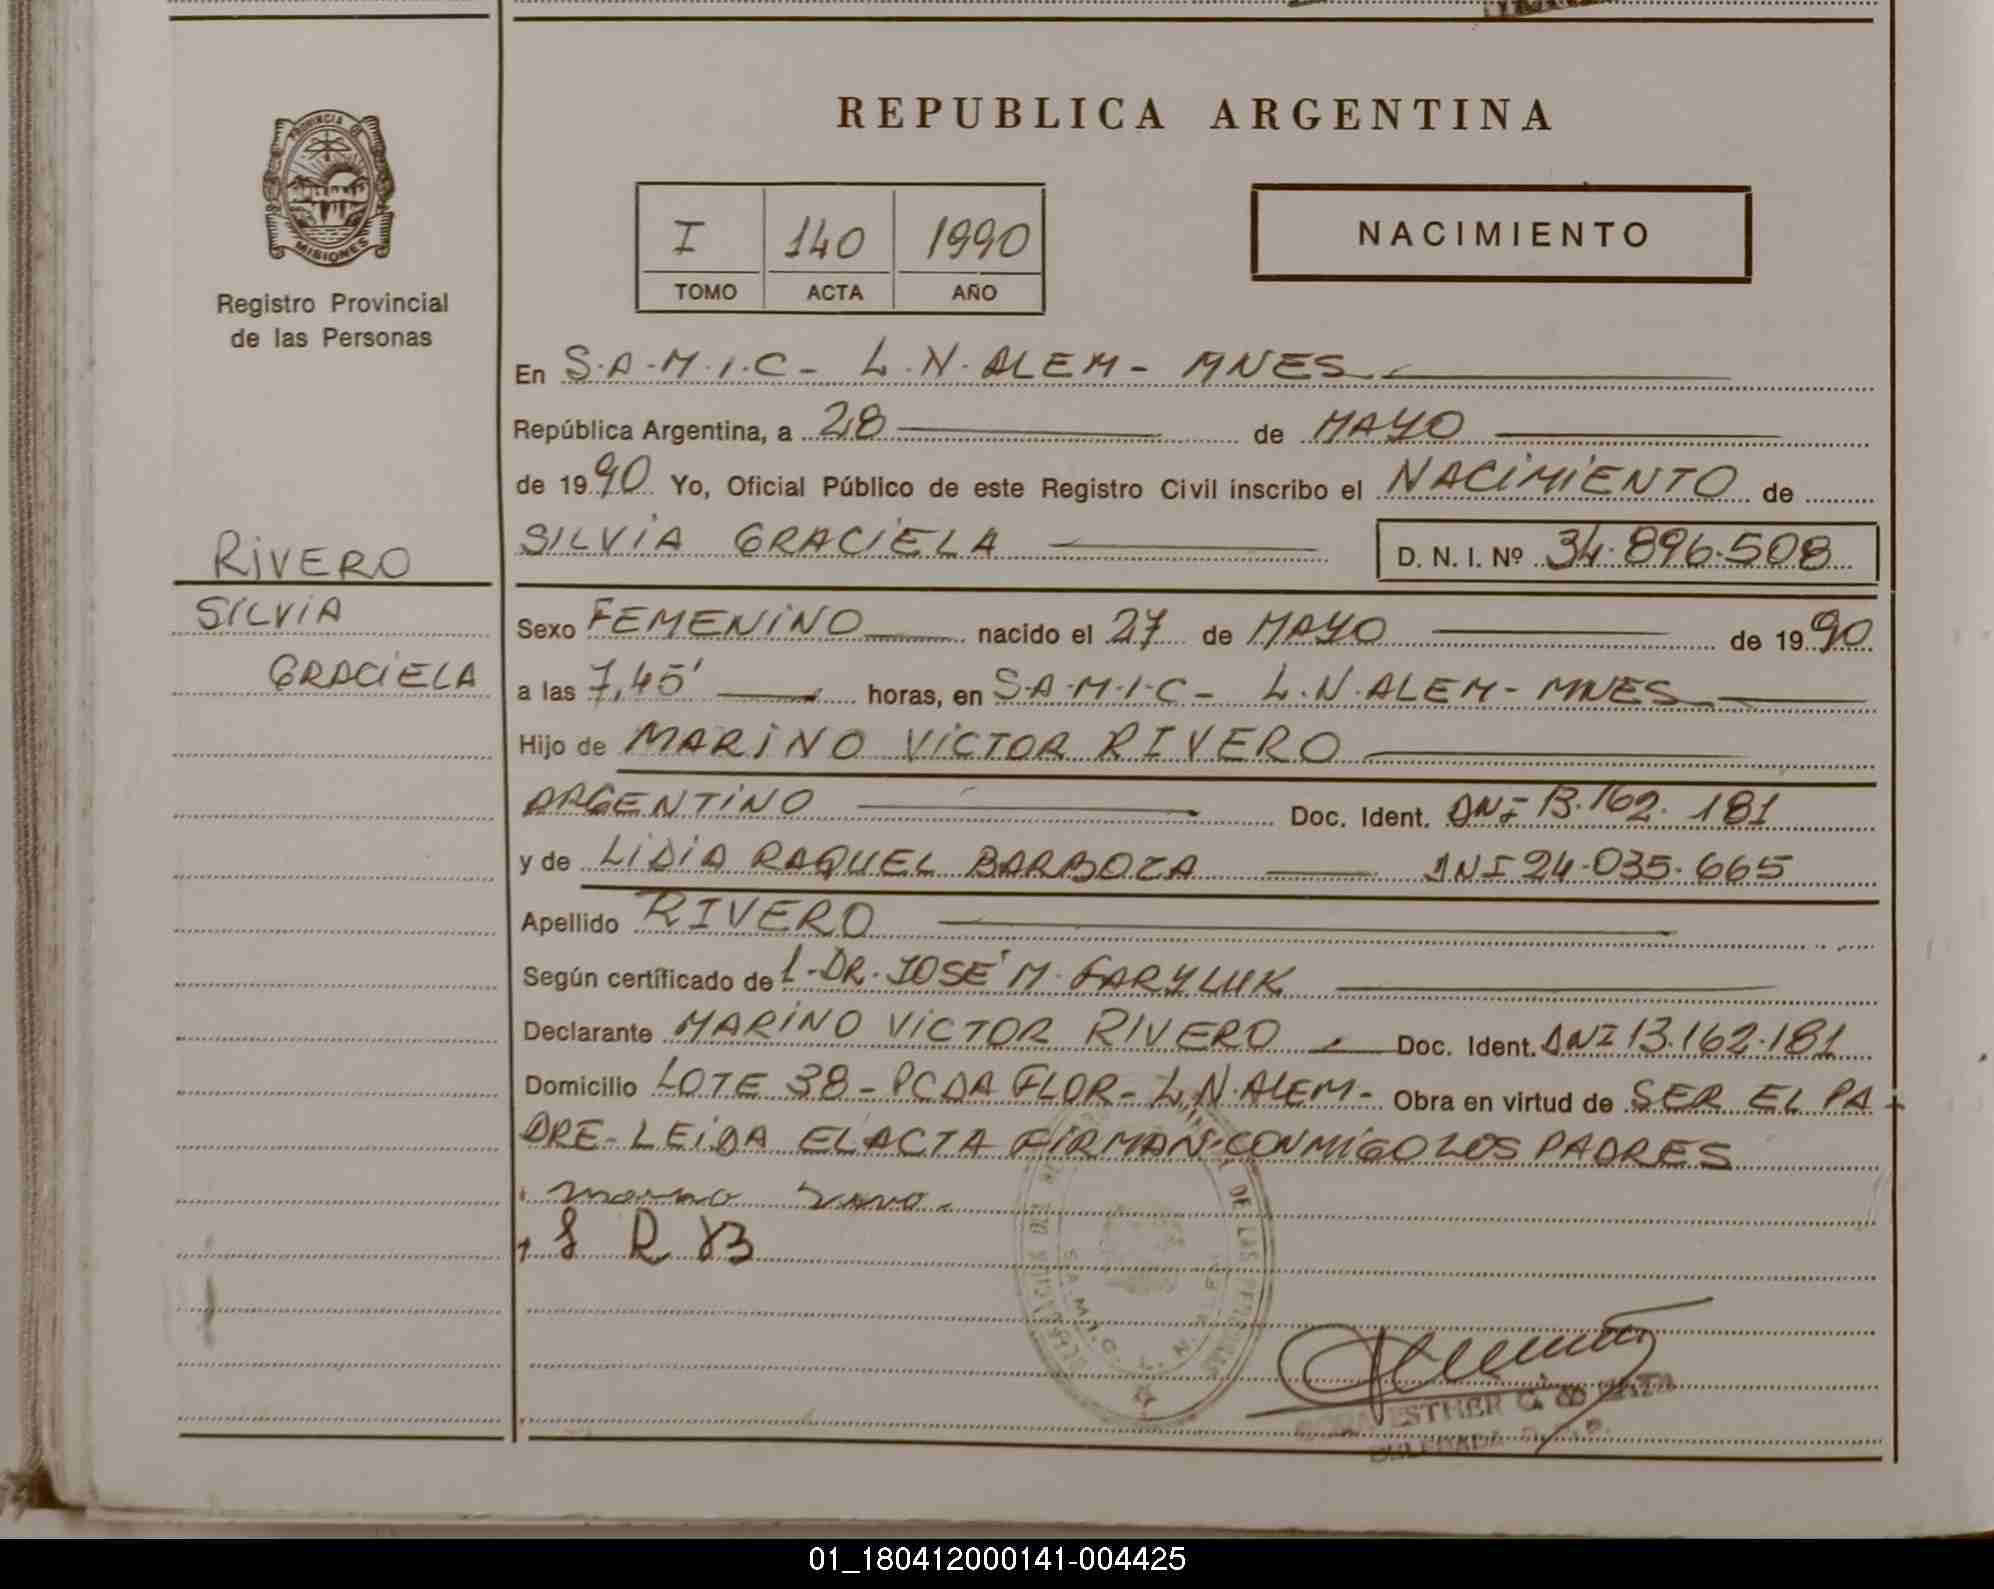 REPUBLICA ARGENTINA
PROVINCIA DE
MISIONES
Registro Provincial
de las Personas
I 140 1990
TOMO ACTA AÑO
NACIMIENTO
En S.A.M.I.C- L.N.ALEM- MNES
República Argentina, a 28 de MAYO
de 1990 Yo, Oficial Público de este Registro Civil inscribo el NACIMIENTO de
SILVIA GRACIELA D. N. I. Nº 34.896.508
RIVERO
SILVIA
GRACIELA
Sexo FEMENINO nacido el 27 de MAYO de 1990
a las 7,45' horas, en S.A.M.I.C- L.N.ALEM- MNES
Hijo de MARINO VICTOR RIVERO
ARGENTINO Doc. Ident. DNI 13.162.181
y de LIDIA RAQUEL BARBOZA DNI 24.035.665
Apellido RIVERO
Según certificado de l-DR. JOSÉ M. GARYLUK
Declarante MARINO VICTOR RIVERO Doc. Ident. DNI 13.162.181
Domicilio LOTE 38- PCDA FLOR- L.N.ALEM- Obra en virtud de SER EL PA
DRE- LEIDA EL ACTA FIRMAN CONMIGO LOS PADRES
L R B
DE LAS PERSONAS
S.A.M.I.C. L. N.
ESTHER G. de
DELEGADA
01_180412000141-004425